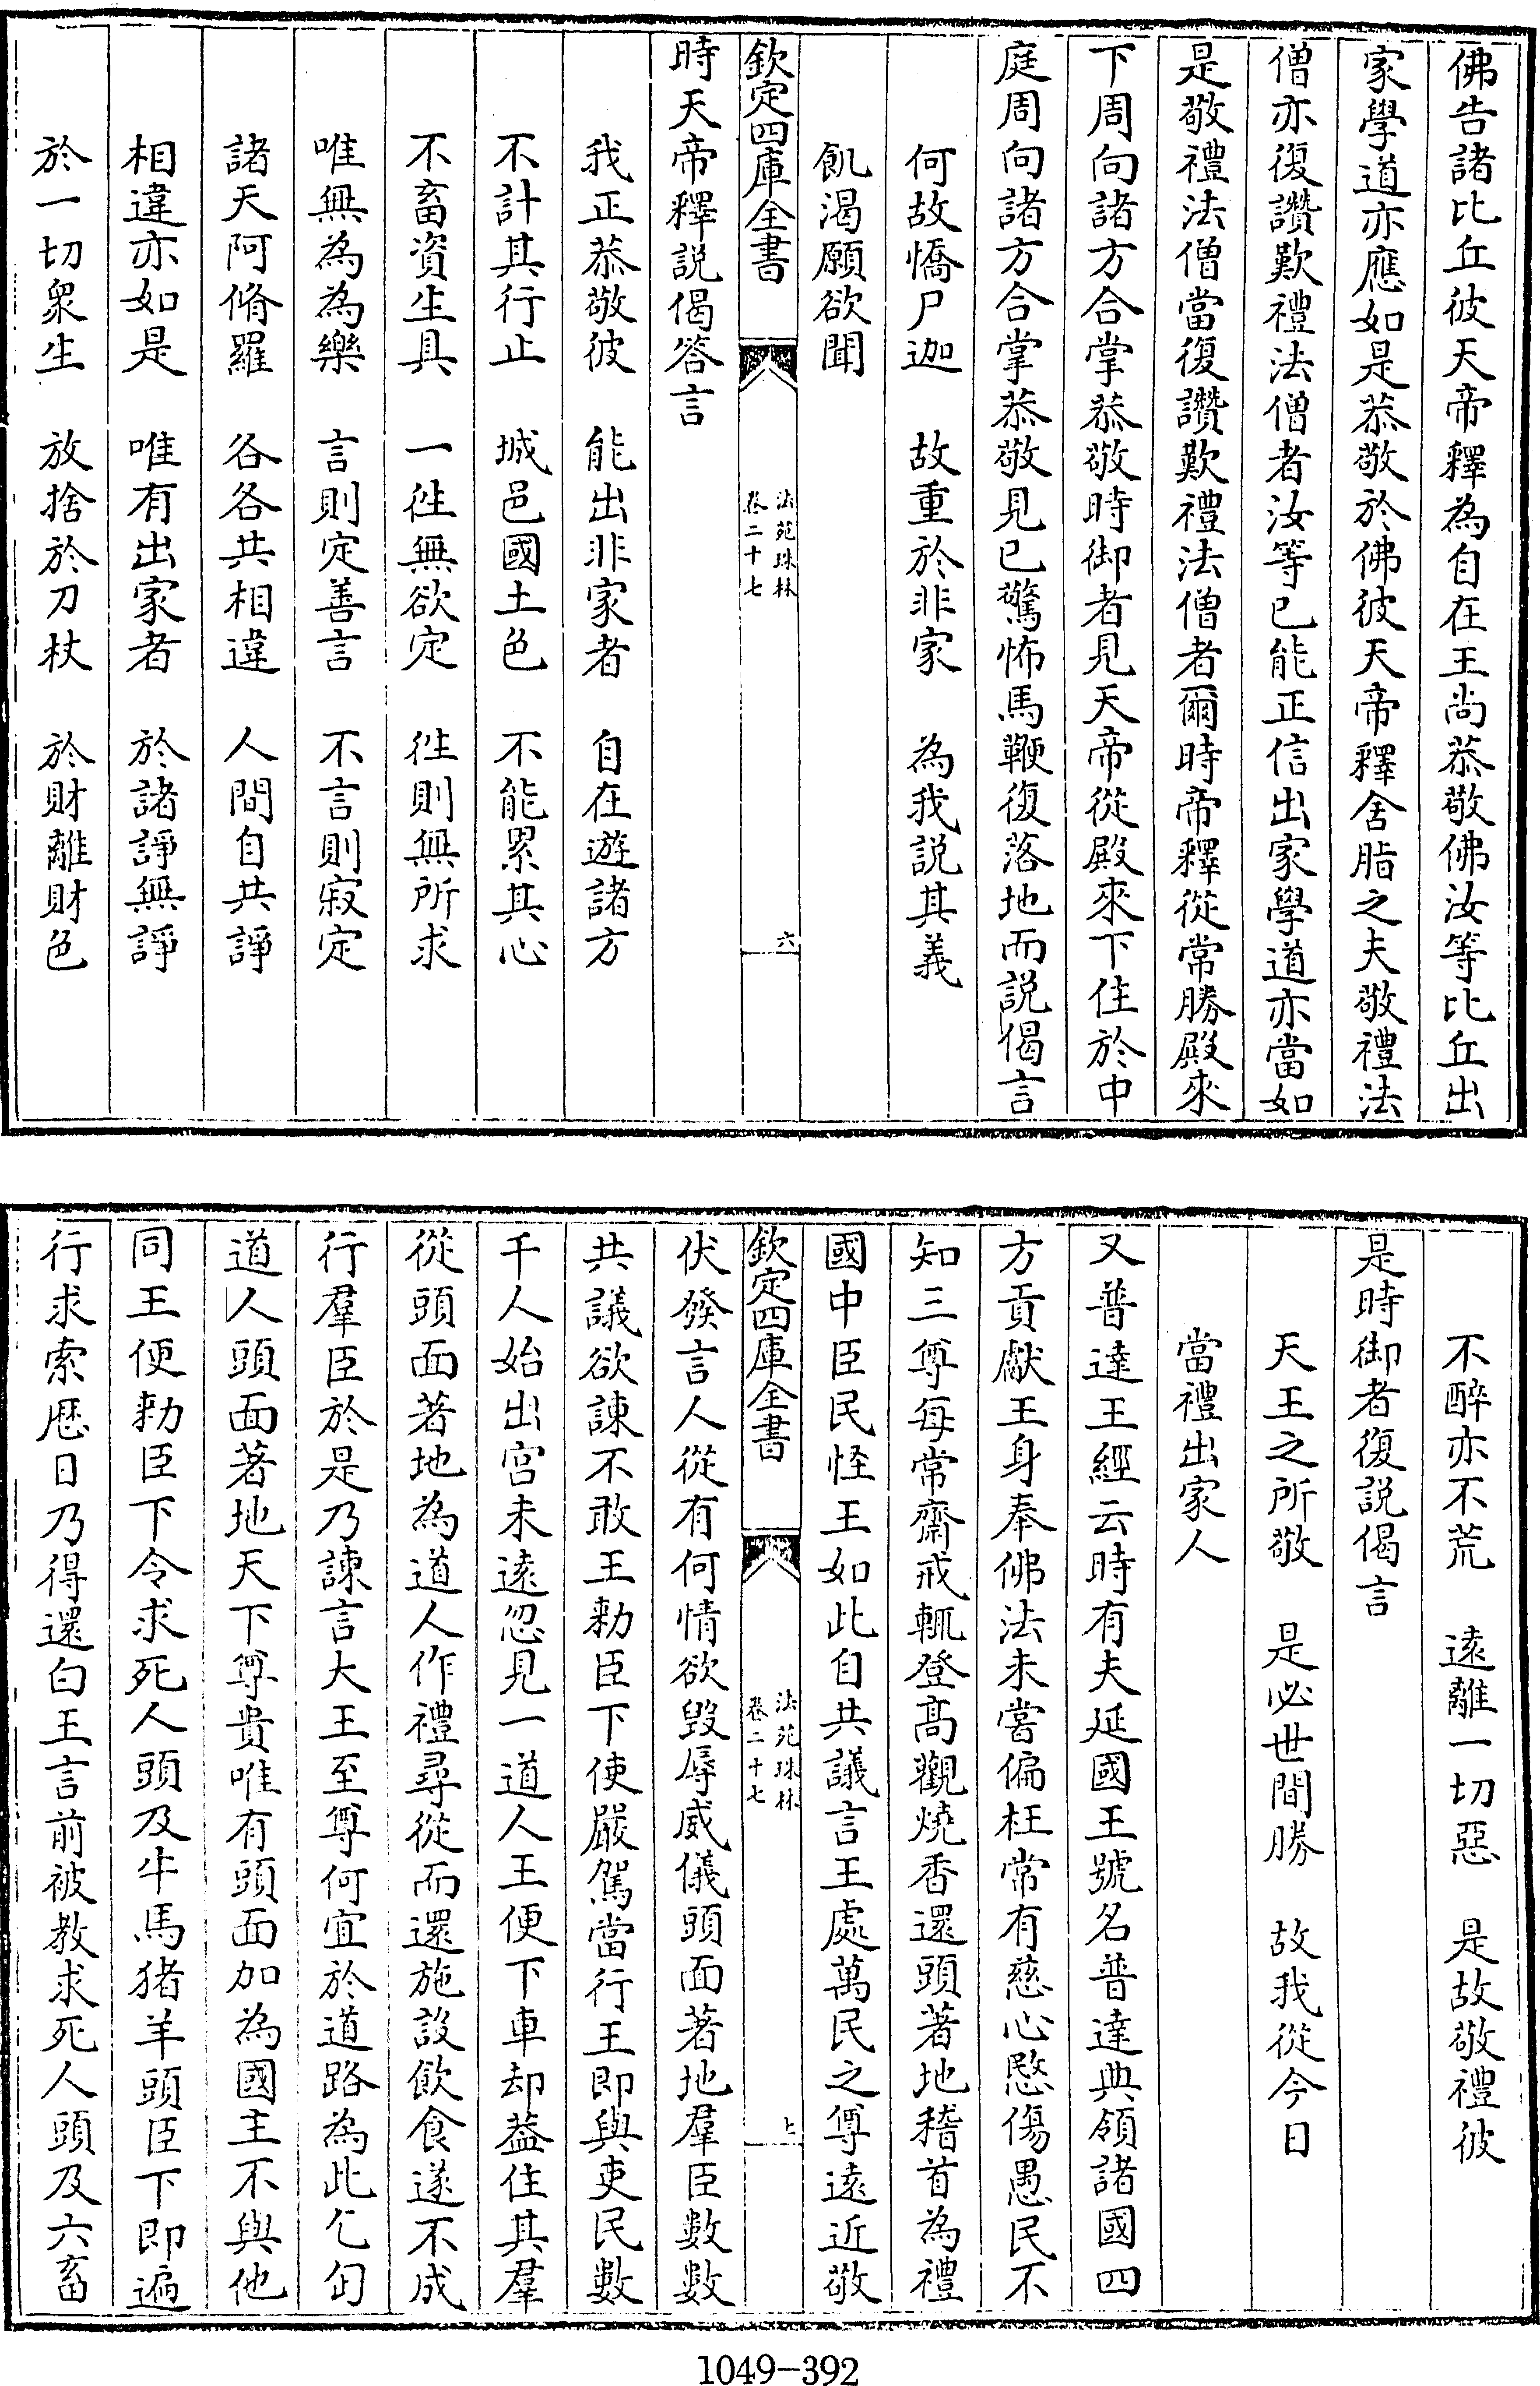 佛告諸比丘彼天帝釋為自在王尚恭敬佛汝等比丘出
家學道亦應如是恭敬於佛彼天帝釋舍脂之夫敬禮法
僧亦復讚歎禮法僧者汝等已能正信出家學道亦當如
是敬禮法僧當復讚歎禮法僧者爾時帝釋從常勝殿來
下周向諸方合掌恭敬時御者見天帝從殿來下住於中
庭周向諸方合掌恭敬見已驚怖馬鞭復落地而説偈言
何故憍尸迦　故重於非家　為我説其義
飢渴願欲聞
欽定四庫全書
法苑珠林
卷二十七
六
時天帝釋説偈答言
我正恭敬彼　能出非家者　自在遊諸方
不計其行止　城邑國土色　不能累其心
不畜資生具　一徃無欲定　徃則無所求
唯無為為樂　言則定善言　不言則寂定
諸天阿脩羅　各各共相違　人間自共諍
相違亦如是　唯有出家者　於諸諍無諍
於一切衆生　放捨於刀杖　於財離財色
不醉亦不荒　遠離一切惡　是故敬禮彼
是時御者復説偈言
天王之所敬　是必世間勝　故我從今日
當禮出家人
又普達王經云時有夫延國王號名普達典領諸國四
方貢獻王身奉佛法未嘗偏枉常有慈心愍傷愚民不
知三尊每常齋戒輒登高觀燒香還頭著地稽首為禮
國中臣民怪王如此自共議言王處萬民之尊遠近敬
欽定四庫全書
法苑珠林
卷二十七
七
伏發言人從有何情欲毀辱威儀頭面著地羣臣數數
共議欲諫不敢王勅臣下使嚴駕當行王即與吏民數
千人始出宮未遠忽見一道人王便下車却葢住其羣
從頭面著地為道人作禮尋從而還施設飲食遂不成
行羣臣於是乃諫言大王至尊何宜於道路為此乞匄
道人頭面著地天下尊貴唯有頭面加為國主不與他
同王便勅臣下令求死人頭及牛馬猪羊頭臣下即遍
行求索歴日乃得還白王言前被教求死人頭及六畜
1049-392